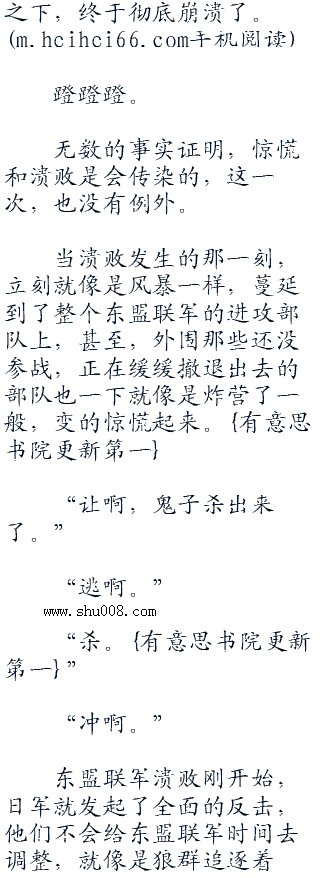 之下，终于彻底崩溃了。
(m.hcihci66.com手机阅读)
蹬蹬蹬。
无数的事实证明，惊慌
和溃败是会传染的，这一
次，也没有例外。
当溃败发生的那一刻，
立刻就像是风暴一样，蔓延
到了整个东盟联军的进攻部
队上，甚至，外围那些还没
参战，正在缓缓撤退出去的
部队也一下就像是炸营了一
般，变的惊慌起来。{有意思
书院更新第一}
“让啊，鬼子杀出来
了。”
“逃啊。”
www.shu008.com
“杀。{有意思书院更新
第一}”
“冲啊。”
东盟联军溃败刚开始，
日军就发起了全面的反击，
他们不会给东盟联军时间去
调整，就像是狼群追逐着